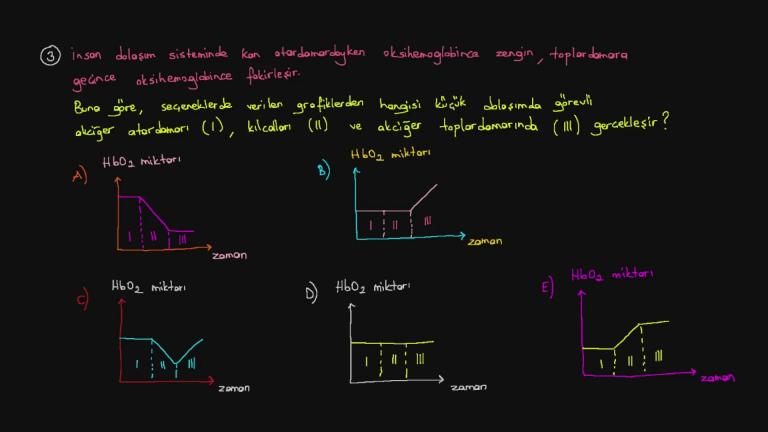 3 İnsan dolaşım sisteminde kan atardamardayken oksihemoglobince zengin, toplardamara
geçince oksihemoglobince fakirleşir.
Buna göre, seçeneklerde verilen grafiklerden hangisi küçük dolaşımda görevli
akciğer atardamarı (I), kılcalları (II) ve akciğer toplardamarında (III) gerçekleşir?
A) HbO2 miktarı
I II III
zaman
B) HbO2 miktarı
I II III
zaman
C) HbO2 miktarı
I II III
zaman
D) HbO2 miktarı
I II III
zaman
E) HbO2 miktarı
I II III
zaman